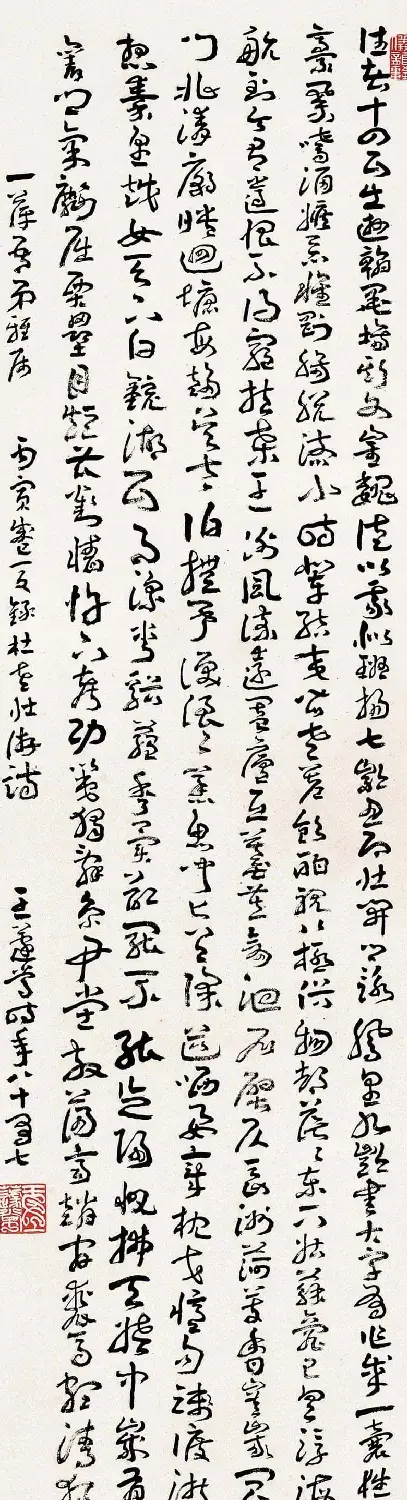 往者十四五出遊翰墨場斯文崔魏徒以我似班揚七齡思即壯開口詠鳳皇九齡書大字有作成一囊性
豪業嗜酒嫉惡懷剛腸脫落小時輩結交皆老蒼飲酣視八極俗物都茫茫東下姑蘇臺已具浮海
航到今有遺恨不得窮扶桑王謝風流遠闔廬丘墓荒劍池石壁仄長洲荷芰香嵯峨閶
門北清廟映迴塘每趨吳太伯撫事淚浪浪蒸魚聞匕首除道哂要章枕戈憶句踐渡浙
想秦皇越女天下白鏡湖五月涼剡谿蘊秀異欲罷不能忘歸帆拂天姥中歲貢
舊鄉氣劘屈賈壘目短曹劉牆忤下考功第獨辭京尹堂放蕩齊趙間裘馬頗清狂
一萍吾弟雅屬 丙寅 錄杜老壯游詩 王蘧常時年八十有七